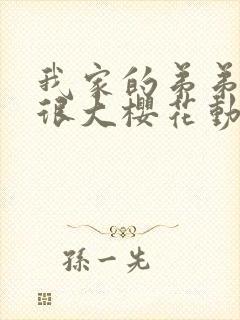 我家的弟弟
很大櫻花動
孫一先